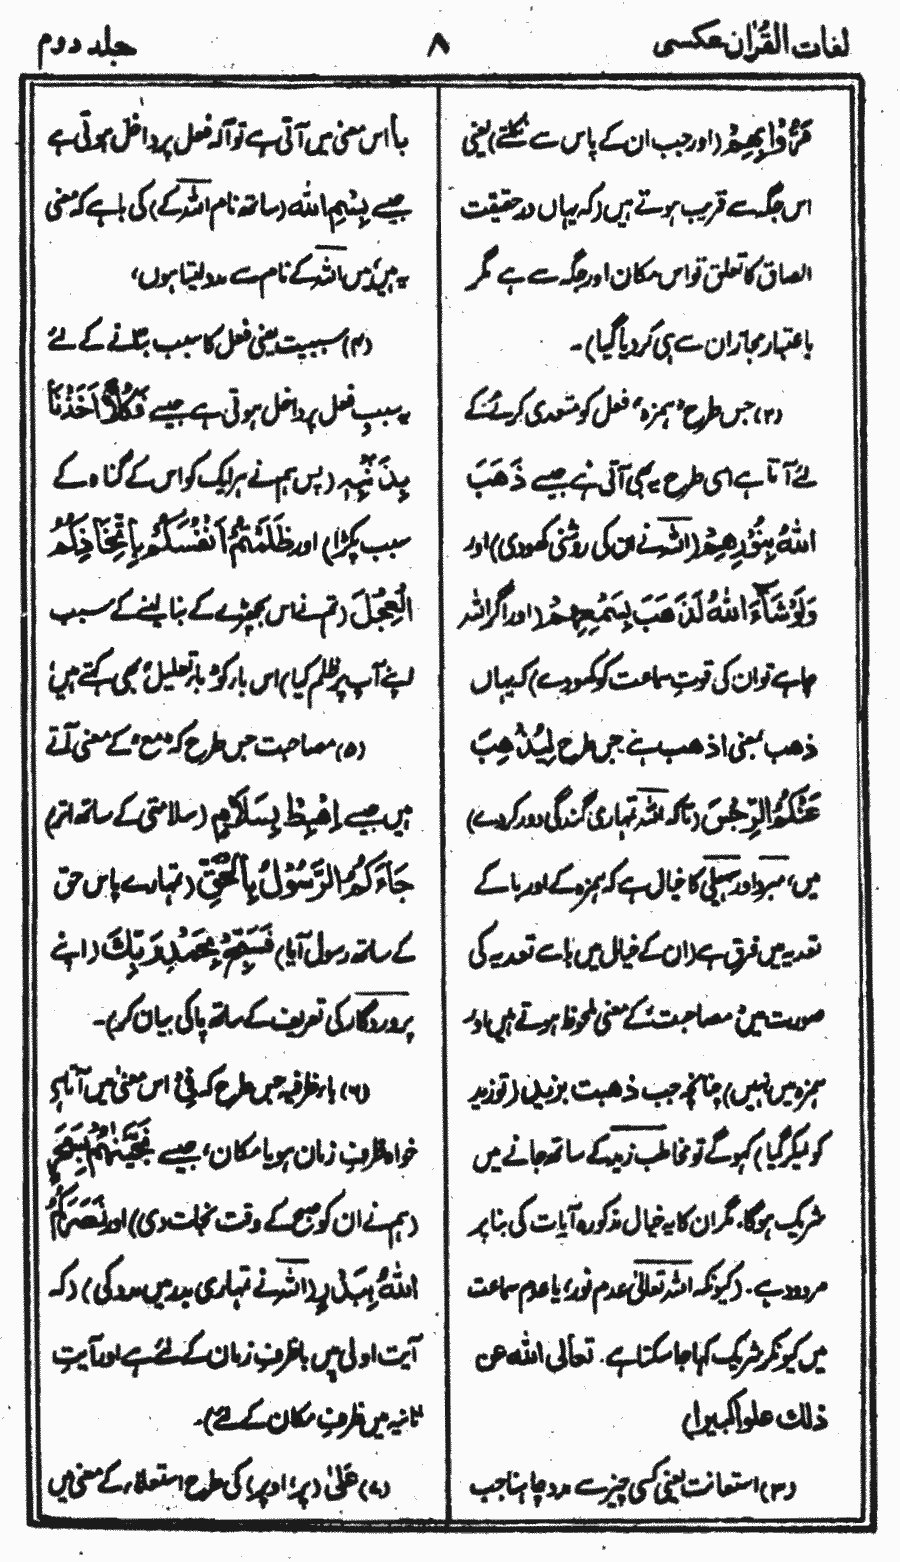 لغات القرآن عکسی
۸
جلد دوم
مَرُّوْا بِهِمْ (اور جب ان کے پاس سے نکلتے) یعنی
اس جگہ سے قریب ہوتے ہیں (کہ یہاں در حقیقت
الصاق کا تعلق تو اس مکان اور جگہ سے ہے مگر
باعتبار مجاز ان سے ہی کر دیا گیا)۔
(۲) جس طرح ہمزہ، فعل کو متعدی کرنے کے
لئے آتا ہے اسی طرح یہ بھی آتی ہے جیسے ذَهَبَ
اللّٰهُ بِنُوْرِهِمْ (اللہ نے ان کی روشنی کھو دی) اور
وَلَوْ شَآءَ اللّٰهُ لَذَهَبَ بِسَمْعِهِمْ (اور اگر اللہ
چاہے تو ان کی قوتِ سماعت کو کھو دے) کہ یہاں
ذھب بمعنی اذھب ہے جس طرح لِيُذْهِبَ
عَنْكُمُ الرِّجْسَ (تاکہ اللہ تمہاری گندگی دور کر دے)
میں، مبرد اور سہیلی کا خیال ہے کہ ہمزہ کے اور با کے
تعدیہ میں فرق ہے (ان کے خیال میں با سے تعدیہ کی
صورت میں مصاحبت کے معنی ملحوظ ہوتے ہیں اور
ہمزہ میں نہیں) چنانچہ جب ذھبت بزید (تو زید
کو لیکر گیا) کہو گے تو مخاطب زید کے ساتھ جانے میں
شریک ہوگا۔ مگر ان کا یہ خیال مذکورہ آیات کی بنا پر
مردود ہے۔ (کیونکہ اللہ تعالیٰ عدم نور، یا عدم سماعت
میں کیونکر شریک کہا جا سکتا ہے۔ تعالى الله عن
ذلك علوا كبيرا)
(۳) استعانت یعنی کسی چیز سے مدد چاہنا جب
بأ اس معنی میں آتی ہے تو آلہ فعل پر داخل ہوتی ہے
جیسے بِسْمِ اللّٰهِ (ساتھ نام اللہ کے) کی با ہے کہ معنی
یہ ہیں "میں اللہ کے نام سے مدد لیتا ہوں"
(۴) سببیت یعنی فعل کا سبب بتلانے کے لئے
یہ سبب فعل پر داخل ہوتی ہے جیسے فَكُلًّا اَخَذْنَا
بِذَنْۢبِهٖ (پس ہم نے ہر ایک کو اس کے گناہ کے
سبب پکڑا) اور ظَلَمْتُمْ اَنْفُسَكُمْ بِاتِّخَاذِكُمُ
الْعِجْلَ (تم نے اس بچھڑے کے بنا لینے کے سبب
اپنے آپ پر ظلم کیا) اس بار کو "بارِ تعلیل" بھی کہتے ہیں
(۵) مصاحبت جس طرح کہ "مع" کے معنی آتے
ہیں جیسے اِهْبِطْ بِسَلَامٍ (سلامتی کے ساتھ اتر)
جَآءَكُمُ الرَّسُوْلُ بِالْحَقِّ (تمہارے پاس حق
کے ساتھ رسول آیا) فَسَبِّحْ بِحَمْدِ رَبِّكَ (اپنے
پروردگار کی تعریف کے ساتھ پاکی بیان کر)۔
(۶) بار ظرفیہ جس طرح کہ فِیْ اس معنی میں آتا ہے
خواہ ظرفِ زمان ہو یا مکان، جیسے نَجَّيْنٰهُمْ بِسَحَرٍ
(ہم نے ان کو صبح کے وقت نجات دی) اور نَصَرَكُمُ
اللّٰهُ بِبَدْرٍ (اللہ نے تمہاری بدر میں مدد کی) (کہ
آیت اولی میں با ظرفِ زمان کے لئے ہے اور آیتِ
ثانیہ میں ظرفِ مکان کے لئے)۔
(۷) عَلٰی (پر، اوپر) کی طرح استعلاء کے معنی میں